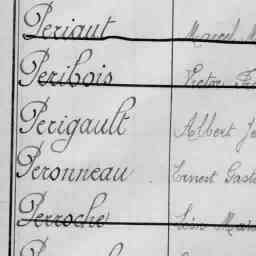 Periaut Marcel
Peribois Victor
Perigault Albert
Peronneau Ernest
Perroche Léon